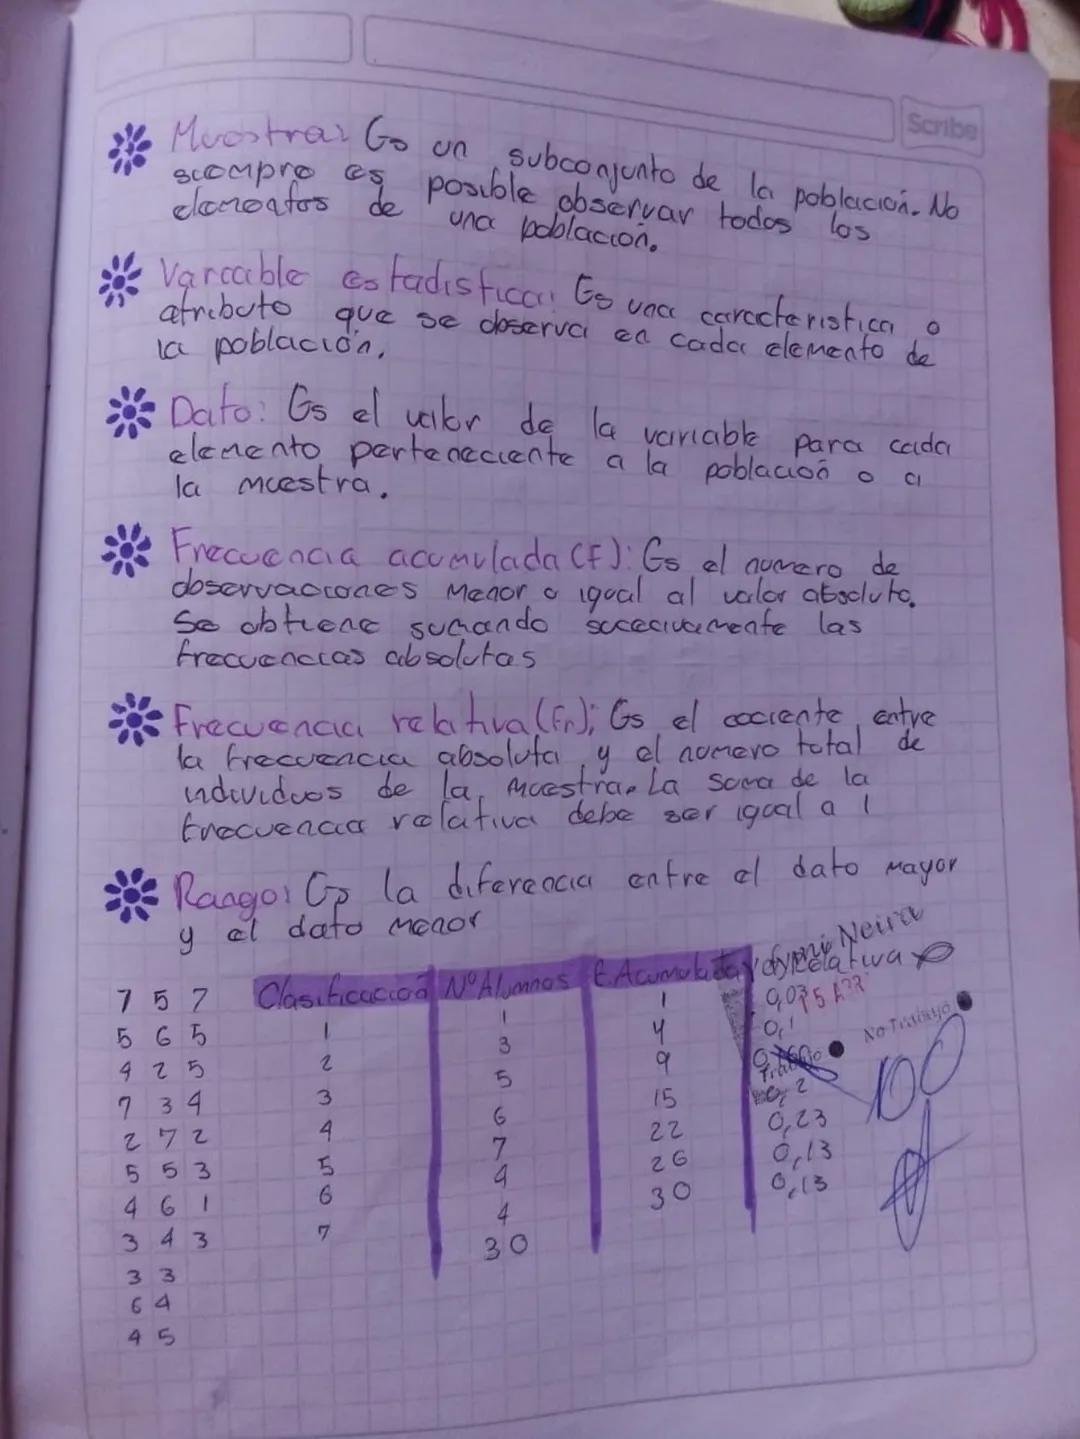 Scribe
Muestra: Es un subconjunto de la población. No
siempre es posible observar todos los
elementos de una población.
Variable estadistica: Es una caracteristica o
atributo que se observa en cada elemento de
la población.
Dato: Es el valor de la variable para cada
elemento perteneciente a la población o a
la muestra.
Frecuencia acumulada (F): Es el numero de
observaciones menor o igual al valor absoluto.
Se obtiene sumando sucecivamente las
frecuencias absolutas
Frecuencia relativa (Fr); Es el cociente entre
la frecuencia absoluta y el numero total de
individuos de la muestra. La suma de la
frecuencia relativa debe ser igual a 1
Rango: Es la diferencia entre el dato mayor
y el dato menor
Neira
Clasificación Nº Alumnos F. Acumulada Relativa
7 5 7
5 6 5
4 2 5
7 3 4
2 7 2
5 5 3
4 6 1
3 4 3
3 3
6 4
4 5
1 1 1 0,03
2 3 4 0,1
3 5 9
4 6 15 0,2
5 7 22 0,23
6 4 26 0,13
7 4 30 0,13
30
No Trabajo
Trabajo
100